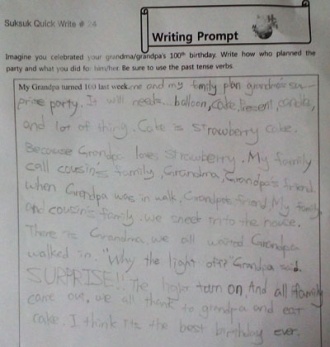 Suksuk Quick Write # 4
Writing Prompt
Imagine you celebrated your grandma/grandpa's 100th birthday. Write how who planned the
party and what you did for him/her. Be sure to use the past tense verbs.
My Grandpa turned 100 last week. me and my family plan grandpa's su-
prise party. It will needs... balloon, cake, present, candle,
and lot of thing. Cake is strowberry cake.
Because Grandpa loves strowberry. My family
call cousin's family, Grandma, Grandpa's friend.
when Grandpa was in walk, Grandpa's friend, My family
and cousin's family. we sneek onto the house.
There is Grandma. we all waited Grandpa
walked in. "Why the light off?" Grandpa said.
SURPRISE!! The light turn on, And all family
came out. we all think to grandpa and eat
cake. I think its the best birthday ever.